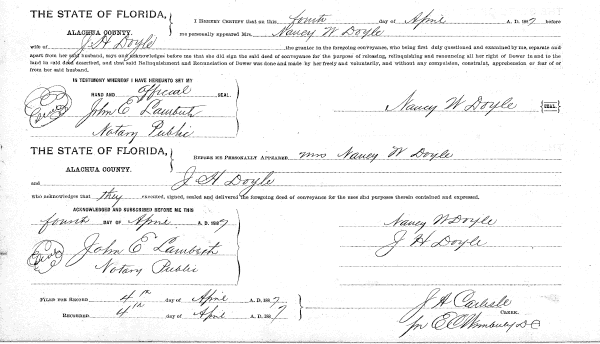 THE STATE OF FLORIDA,
ALACHUA COUNTY.
I HEREBY CERTIFY that on this fourth day of April A. D. 1887 before
me personally appeared Mrs Nancy W Doyle
wife of J H Doyle the grantor in the foregoing conveyance, who being first duly questioned and examined by me, separate and
apart from her said husband, says and acknowledges before me that she did sign the said deed of conveyance for the purpose of releasing, relinquishing and renouncing all her right of Dower in and to the
land in said deed described, and that said Relinquishment and Renunciation of Dower was done and made by her freely and voluntarily, and without any compulsion, constraint, apprehension or fear of or
from her said husband.
IN TESTIMONY WHEREOF I HAVE HEREUNTO SET MY
HAND AND Official SEAL.
John E Lambeth
Notary Public
Nancy W Doyle SEAL.
THE STATE OF FLORIDA,
ALACHUA COUNTY.
BEFORE ME PERSONALLY APPEARED Mrs Nancy W Doyle
and J H Doyle
who acknowledges that they executed, signed, sealed and delivered the foregoing deed of conveyance for the uses and purposes therein contained and expressed.
ACKNOWLEDGED AND SUBSCRIBED BEFORE ME THIS
fourth DAY OF April A. D. 1887
John E Lambeth
Notary Public
Nancy W Doyle
J H Doyle
FILED FOR RECORD 4th day of April A. D. 1887
RECORDED 4th day of April A. D. 1887
J A Carlisle
CLERK.
pr E C DC